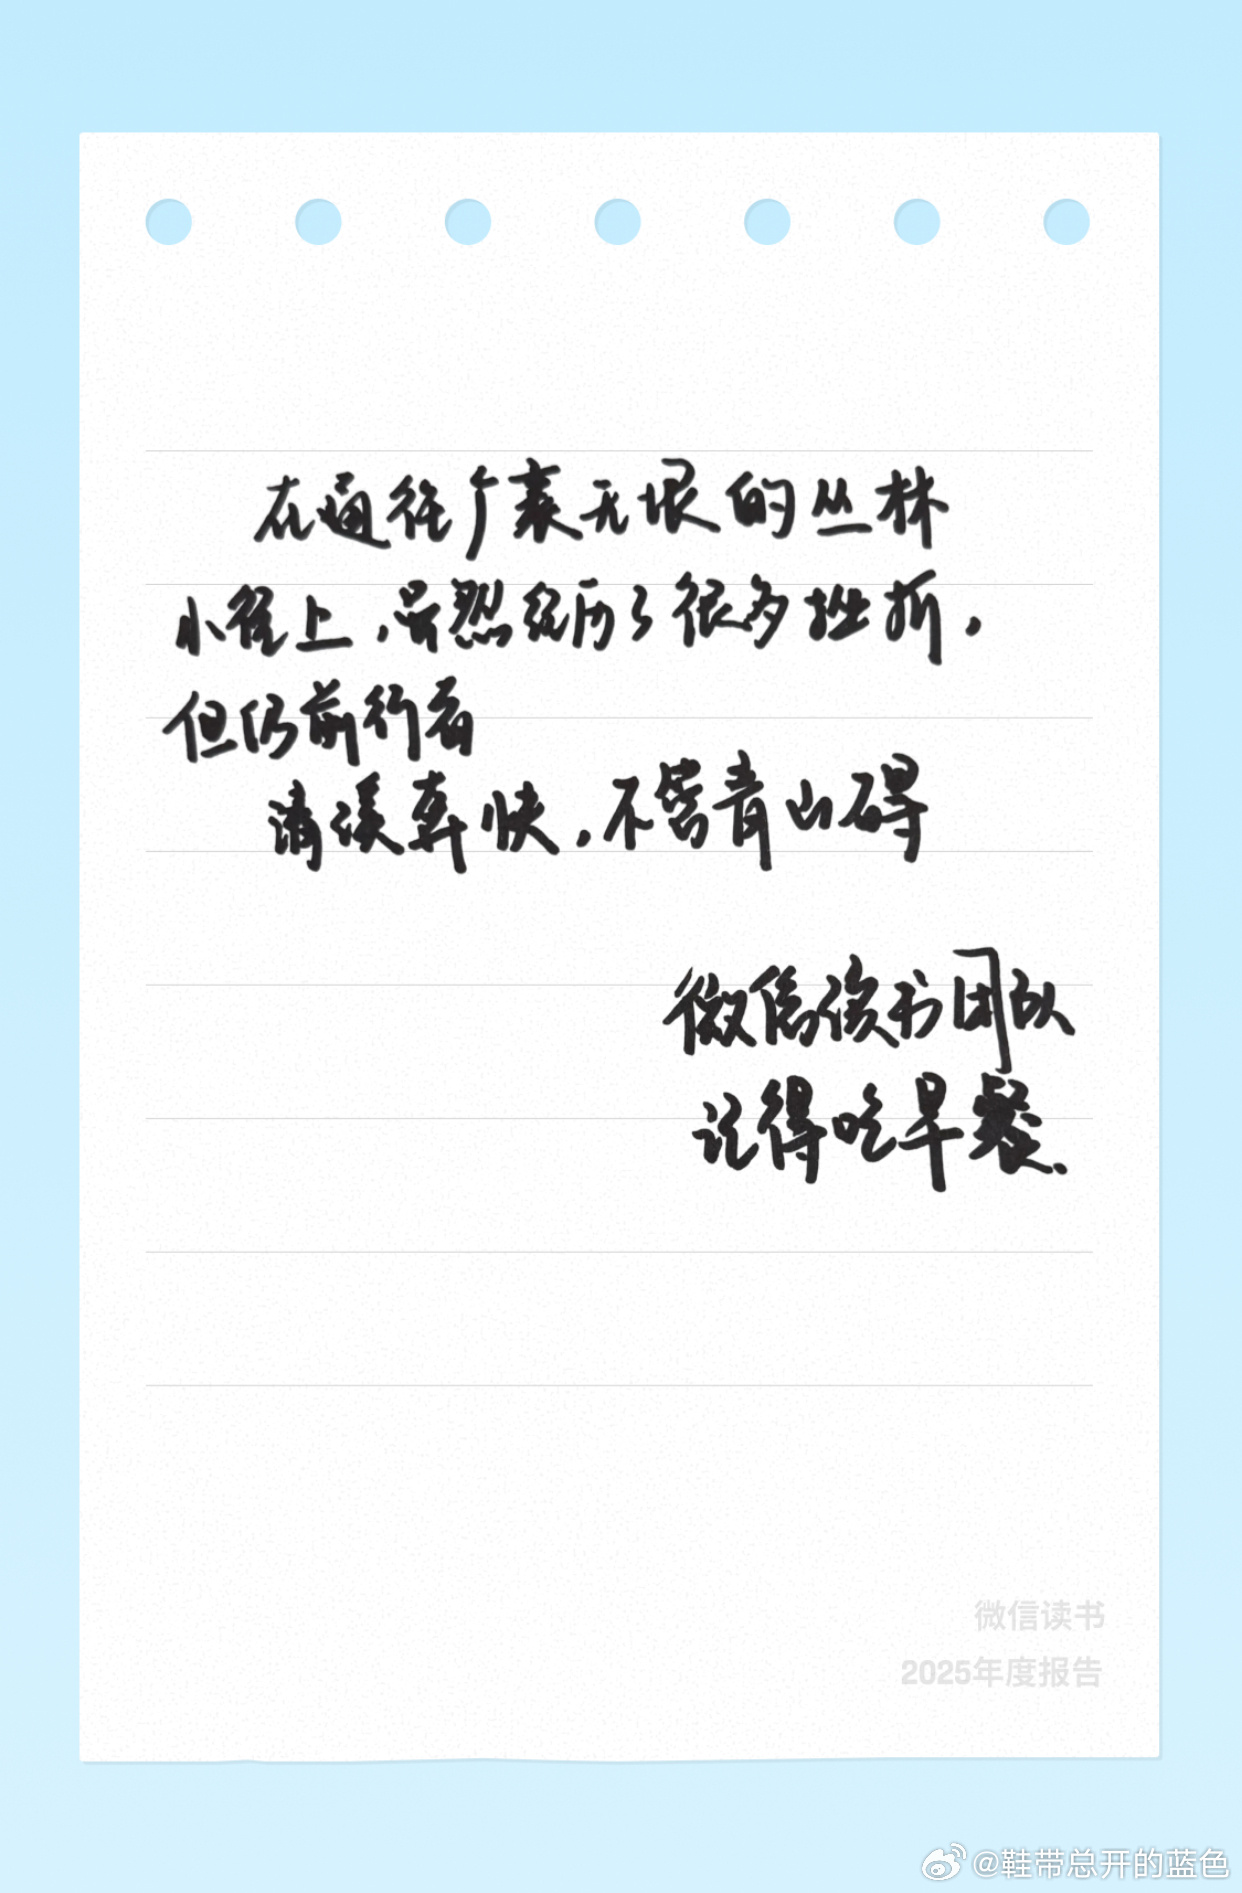 在通往广袤无垠的丛林
小径上,虽然经历了很多挫折,
但仍前行着
清溪奔快,不管青山碍
微信读书团队
记得吃早餐.
微信读书
2025年度报告
@鞋带总开的蓝色